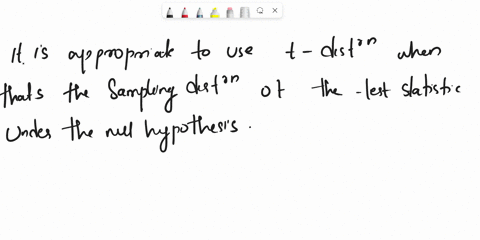 It is appropriate to use t-dist^n when
that's the Sampling dist^n of the test statistic
Under the null hypothesis.